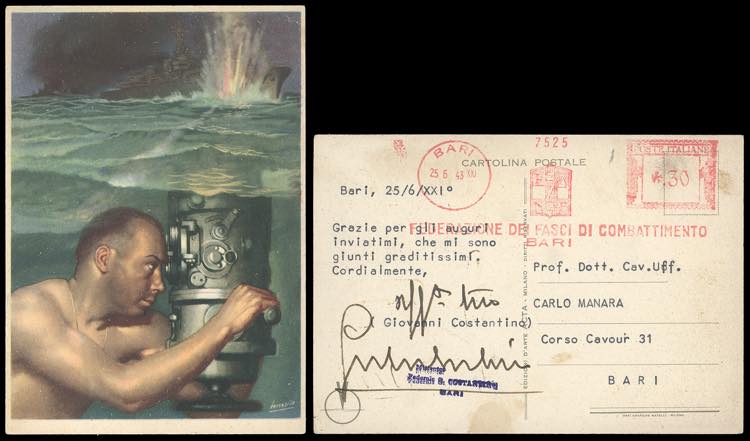 7525
BARI
25.6 43 XXI
CARTOLINA POSTALE
POSTE ITALIANE
30
Bari, 25/6/XXI°
FEDERAZIONE DEI FASCI DI COMBATTIMENTO
BARI
Grazie per gli auguri
inviatimi, che mi sono
giunti graditissimi.
Cordialmente,
(Giovanni Costantino)
G. COSTANTINO
BARI
EDIZIONI D'ARTE - MILANO - DIRITTI RISERVATI
Prof. Dott. Cav.Uff.
CARLO MANARA
Corso Cavour 31
BARI